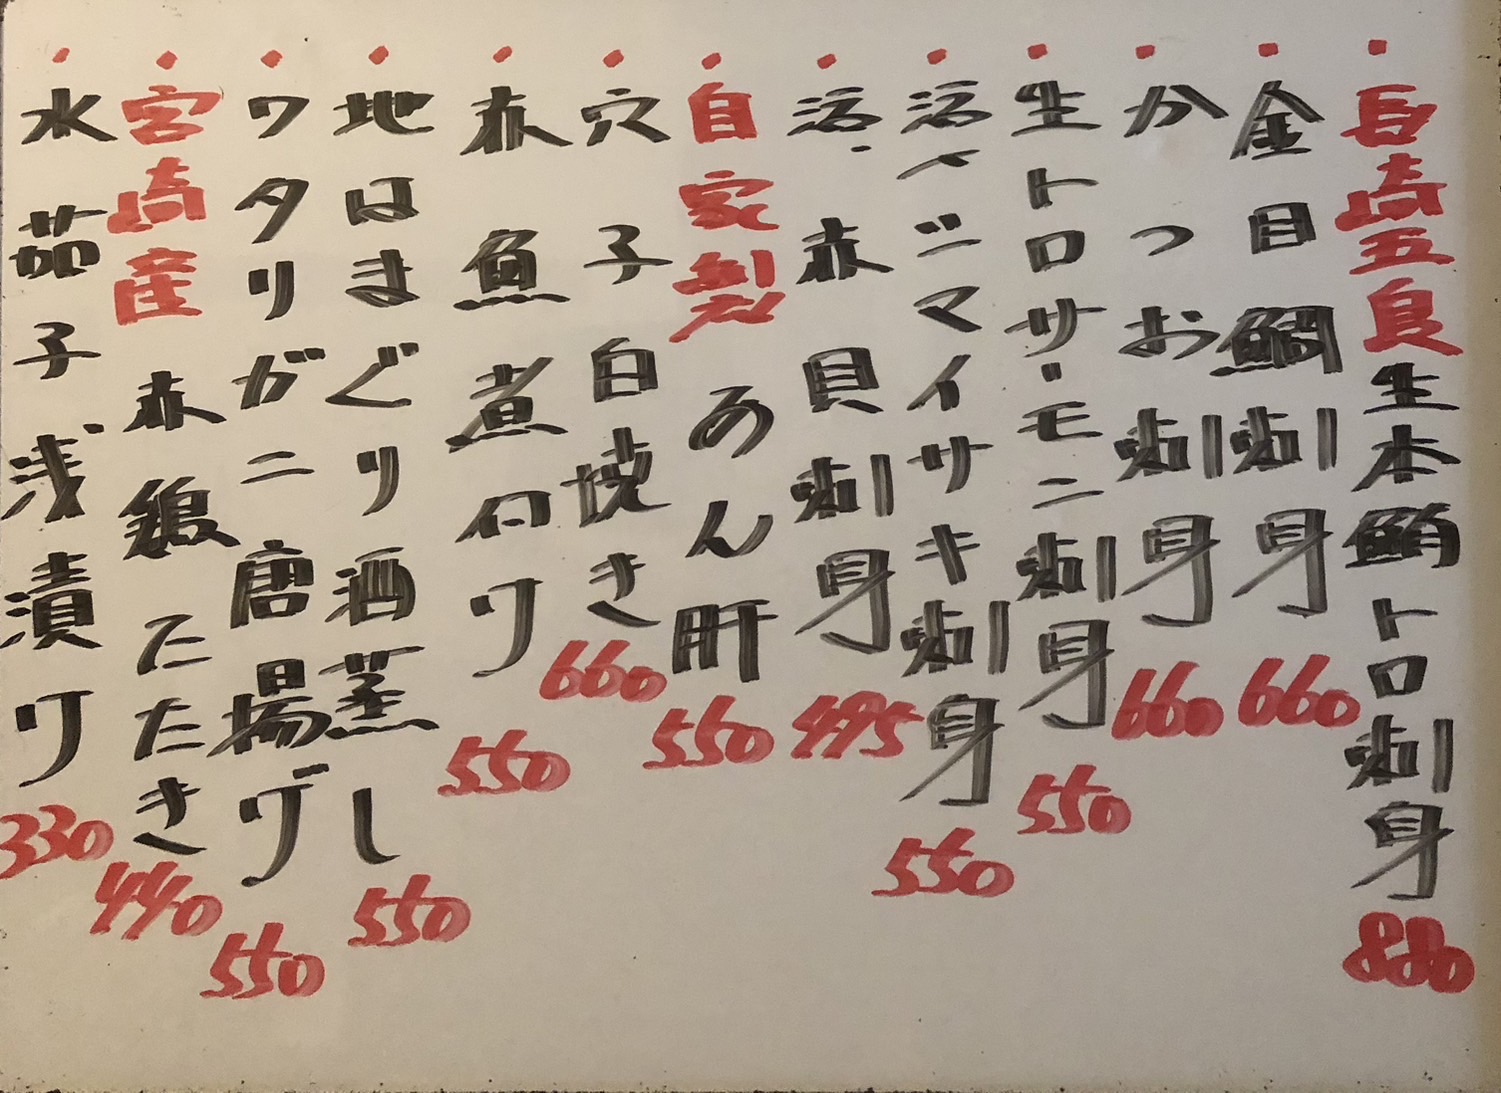 ・長崎五島生本鮪トロ刺身 880
・金目鯛刺身 660
・かつお刺身 660
・生トロサーモン刺身 550
・活〆シマイサキ刺身 550
・活・赤貝刺身 495
・自家製あん肝 550
・穴子白焼き 660
・赤魚煮付け 550
・地はまぐり酒蒸し 550
・ワタリガニ唐揚げ 550
・宮崎産赤鶏たたき 440
・水茄子浅漬け 330